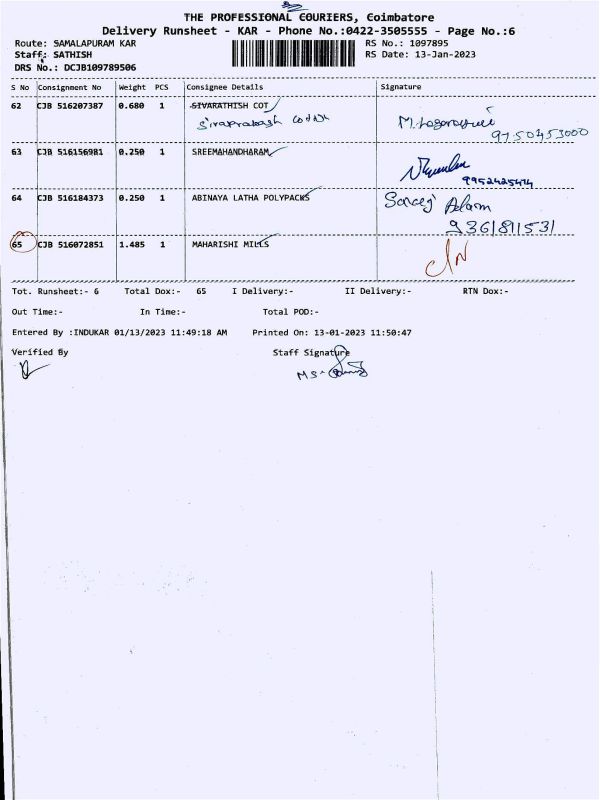 THE PROFESSIONAL COURIERS, Coimbatore
Delivery Runsheet - KAR - Phone No.:0422-3505555 - Page No.:6
Route: SAMALAPURAM KAR
RS No.: 1097895
Staff: SATHISH
RS Date: 13-Jan-2023
DRS No.: DCJB109789506
S No Consignment No Weight PCS Consignee Details Signature
62 CJB 516207387 0.680 1 SIVARATHISH COT
9750453000
63 CJB 516156981 0.250 1 SREEMAHANDHARAM
9952425414
64 CJB 516184373 0.250 1 ABINAYA LATHA POLYPACKS
9361811531
65 CJB 516072851 1.485 1 MAHARISHI MILLS
Tot. Runsheet:- 6 Total Dox:- 65 I Delivery:- II Delivery:- RTN Dox:-
Out Time:- In Time:- Total POD:-
Entered By :INDUKAR 01/13/2023 11:49:18 AM Printed On: 13-01-2023 11:50:47
Verified By Staff Signature